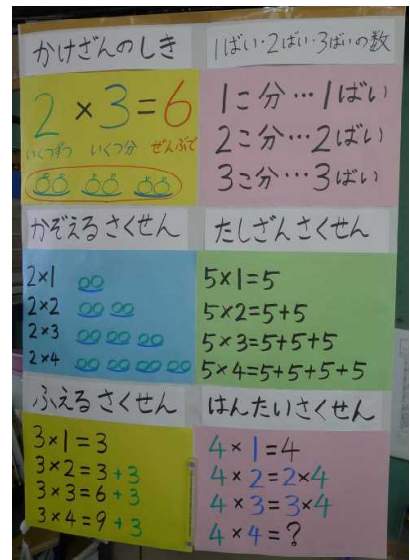 かけざんのしき
2×3=6
いくつずつ いくつ分 ぜんぶで
1ばい・2ばい・3ばいの数
1こ分…1ばい
2こ分…2ばい
3こ分…3ばい
かぞえるさくせん
2×1
2×2
2×3
2×4
たしざんさくせん
5×1=5
5×2=5+5
5×3=5+5+5
5×4=5+5+5+5
ふえるさくせん
3×1=3
3×2=3+3
3×3=6+3
3×4=9+3
はんたいさくせん
4×1=4
4×2=2×4
4×3=3×4
4×4=?